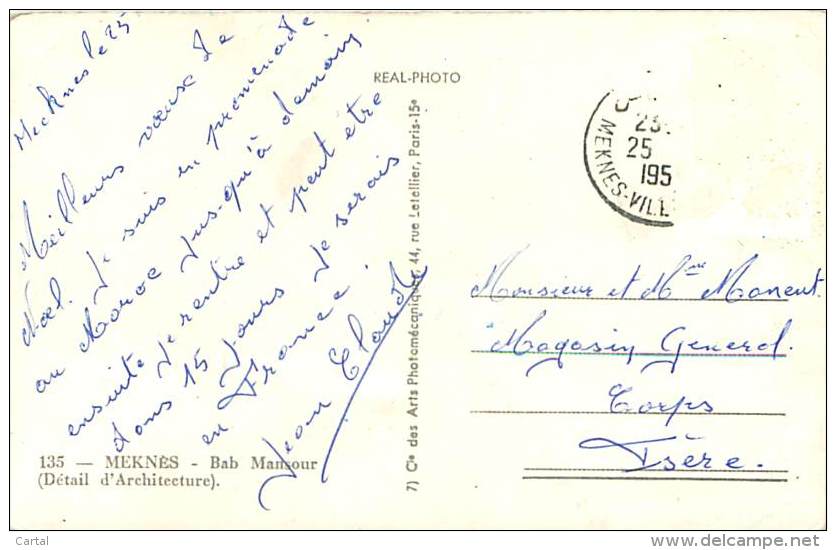 Meknes le 25
Meilleurs vœux de
Noel. Je suis en promenade
au Maroc jus-qu'à demain
ensuite je rentre et peut être
dans 15 jours je serais
en France.
Jean Claude
135 — MEKNÈS - Bab Mansour
(Détail d'Architecture).
REAL-PHOTO
7) Cie des Arts Photomécaniques, 44, rue Letellier, Paris-15e
25
195
MEKNES-VILL
Monsieur et Mme Monent
Magasin General.
Corps
Isère.
Cartal
www.delcampe.net